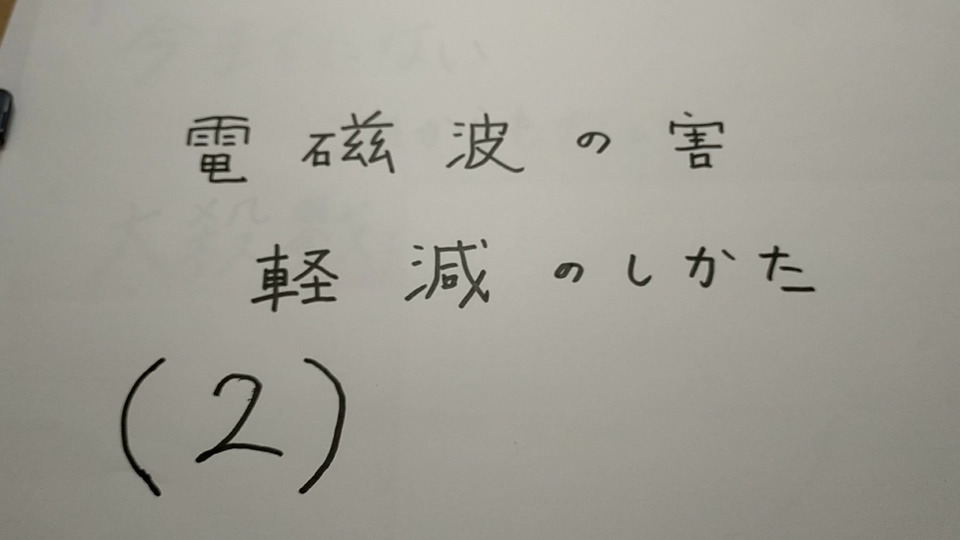 電磁波の害
軽減のしかた
(2)